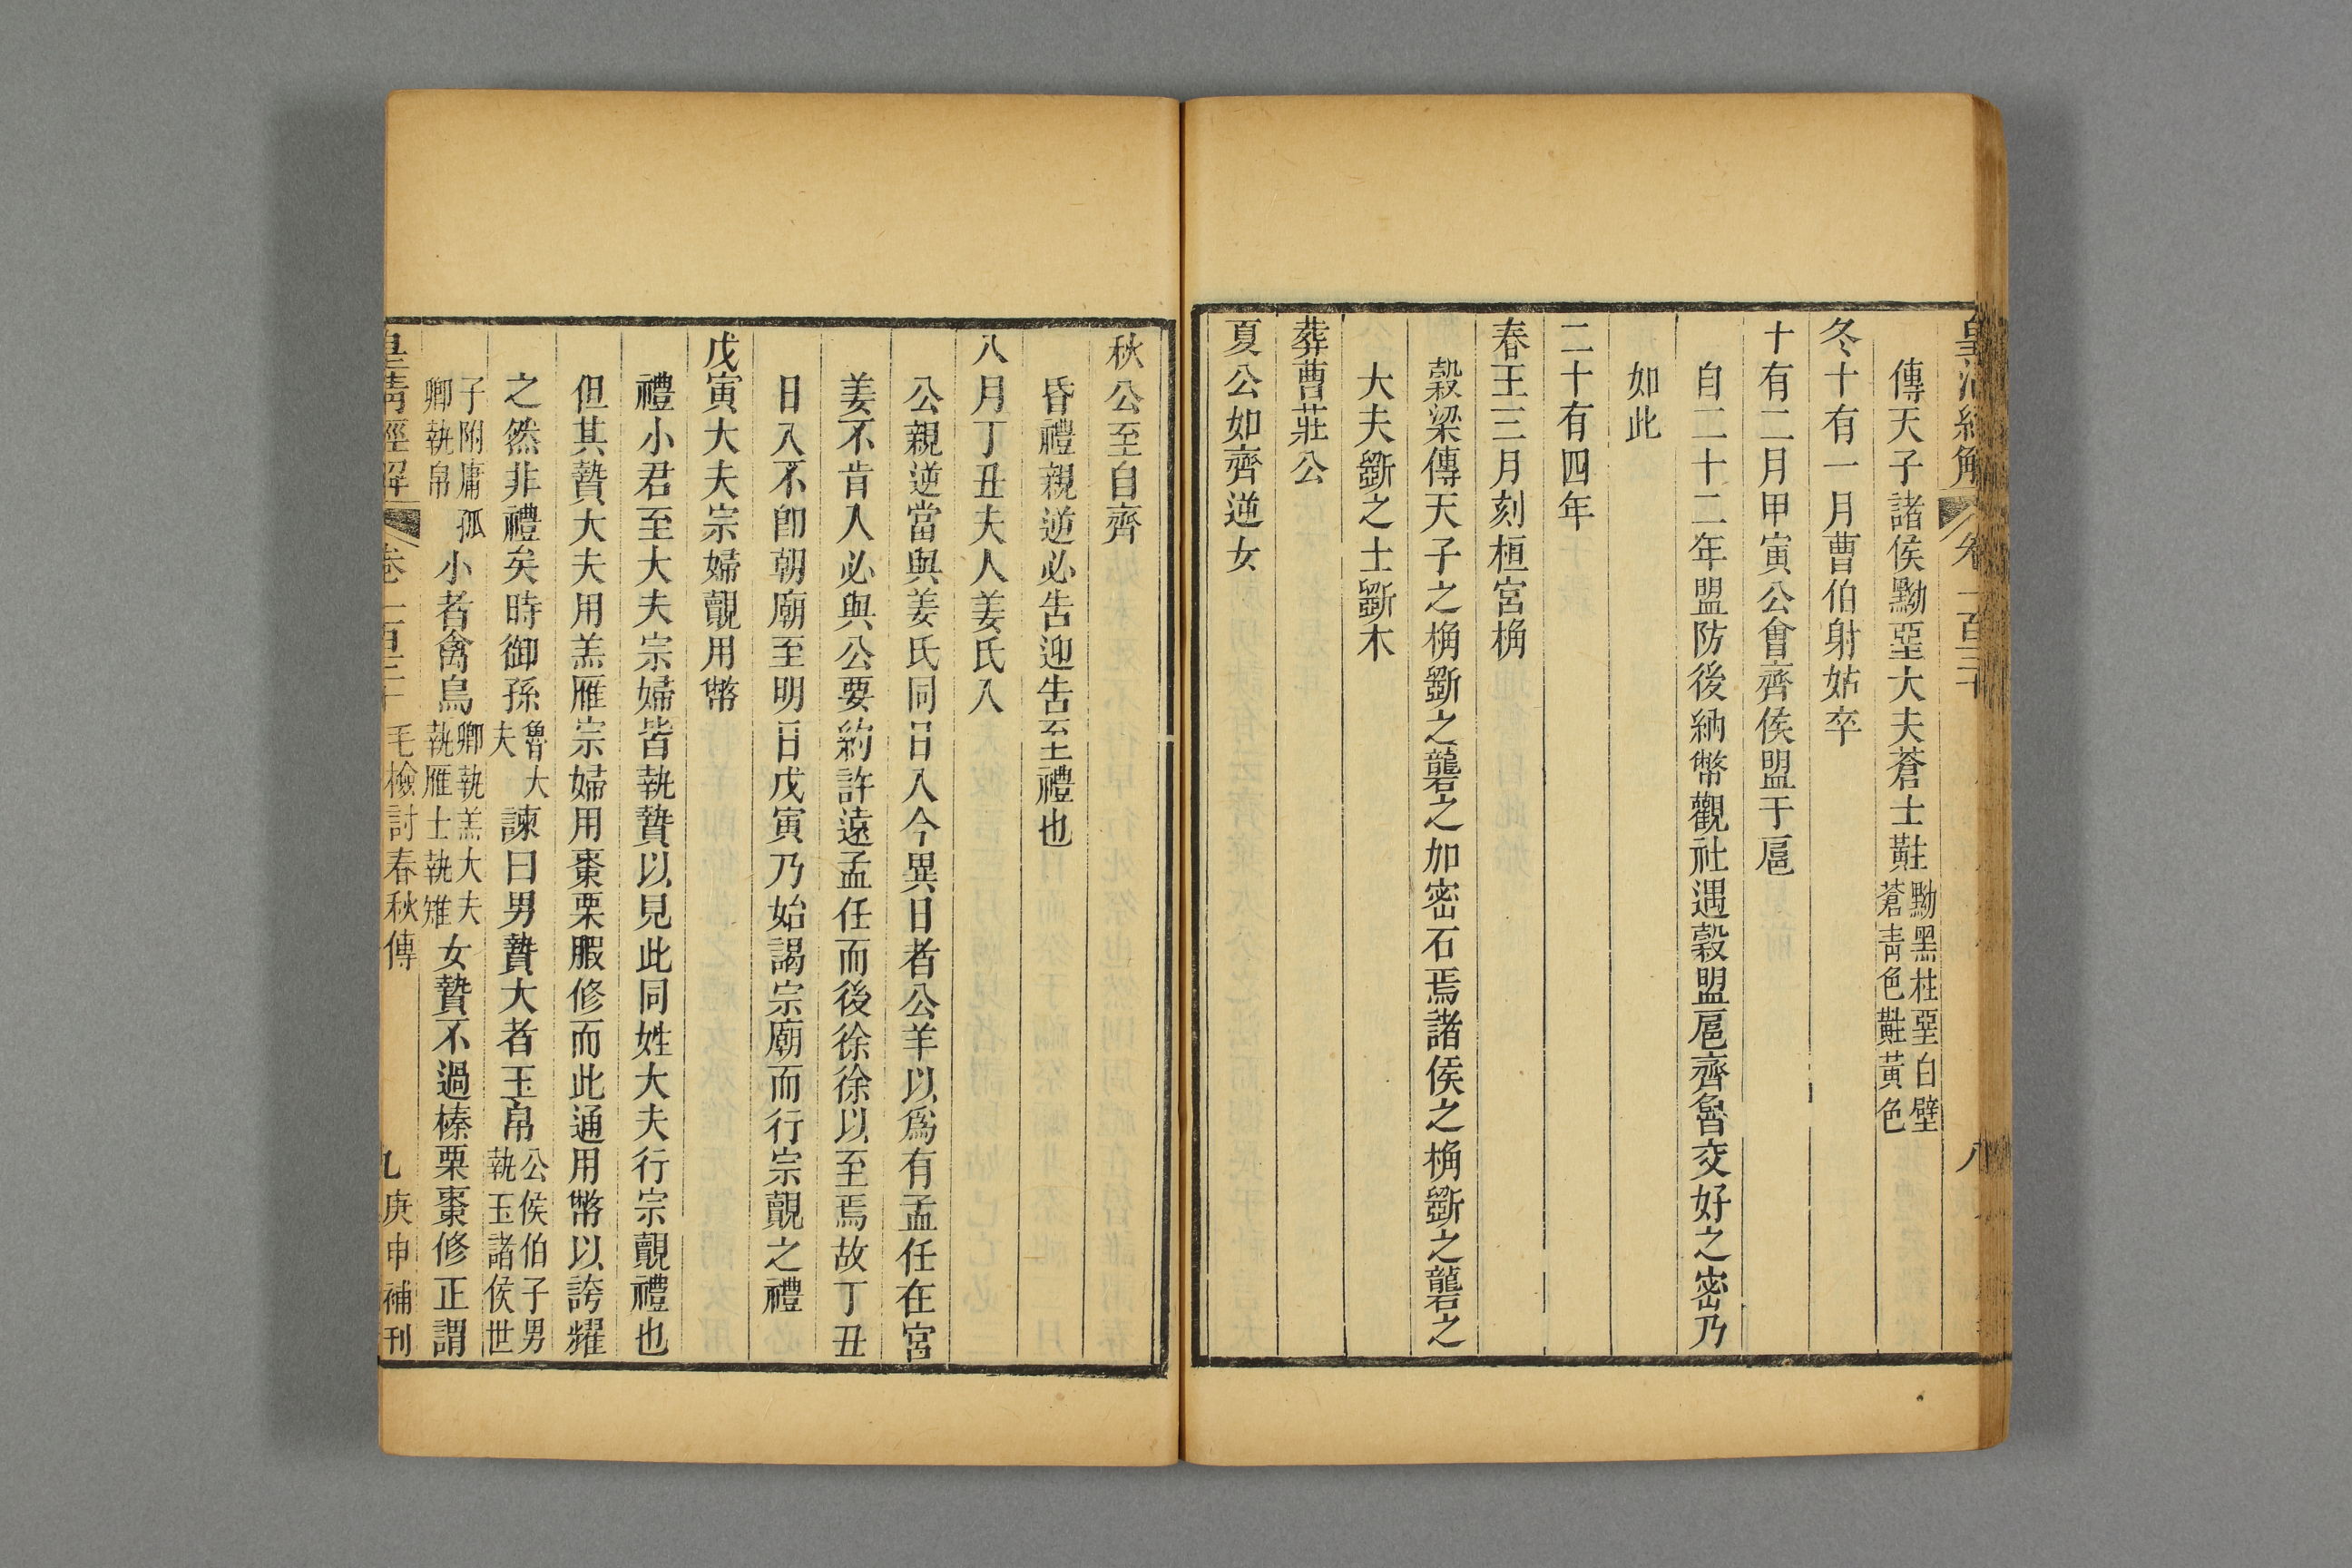 傳天子諸侯黝堊大夫蒼士黈黝黑柱堊白壁蒼青色黈黃色
冬十有一月曹伯射姑卒
十有二月甲寅公會齊侯盟于扈
自二十二年盟防後納幣觀社遇穀盟扈齊魯交好之密乃
如此
二十有四年
春王三月刻桓宮桷
穀梁傳天子之桷斲之礱之加密石焉諸侯之桷斲之礱之
大夫斲之士斲木
葬曹莊公
夏公如齊逆女
秋公至自齊
昏禮親逆必告迎告至禮也
八月丁丑夫人姜氏入
公親逆當與姜氏同日入今異日者公羊以爲有孟任在宮
姜不肯入必與公要約許遠孟任而後徐徐以至焉故丁丑
日入不卽朝廟至明日戊寅乃始謁宗廟而行宗覿之禮
戊寅大夫宗婦覿用幣
禮小君至大夫宗婦皆執贄以見此同姓大夫行宗覿禮也
但其贄大夫用羔雁宗婦用棗栗腶修而此通用幣以誇耀
之然非禮矣時御孫魯大夫諫曰男贄大者玉帛公侯伯子男執玉諸侯世
子附庸孤卿執帛小者禽鳥卿執羔大夫執雁士執雉女贄不過榛栗棗修正謂
皇淸經解 卷一百二十 毛檢討春秋傳 九 庚申補刊